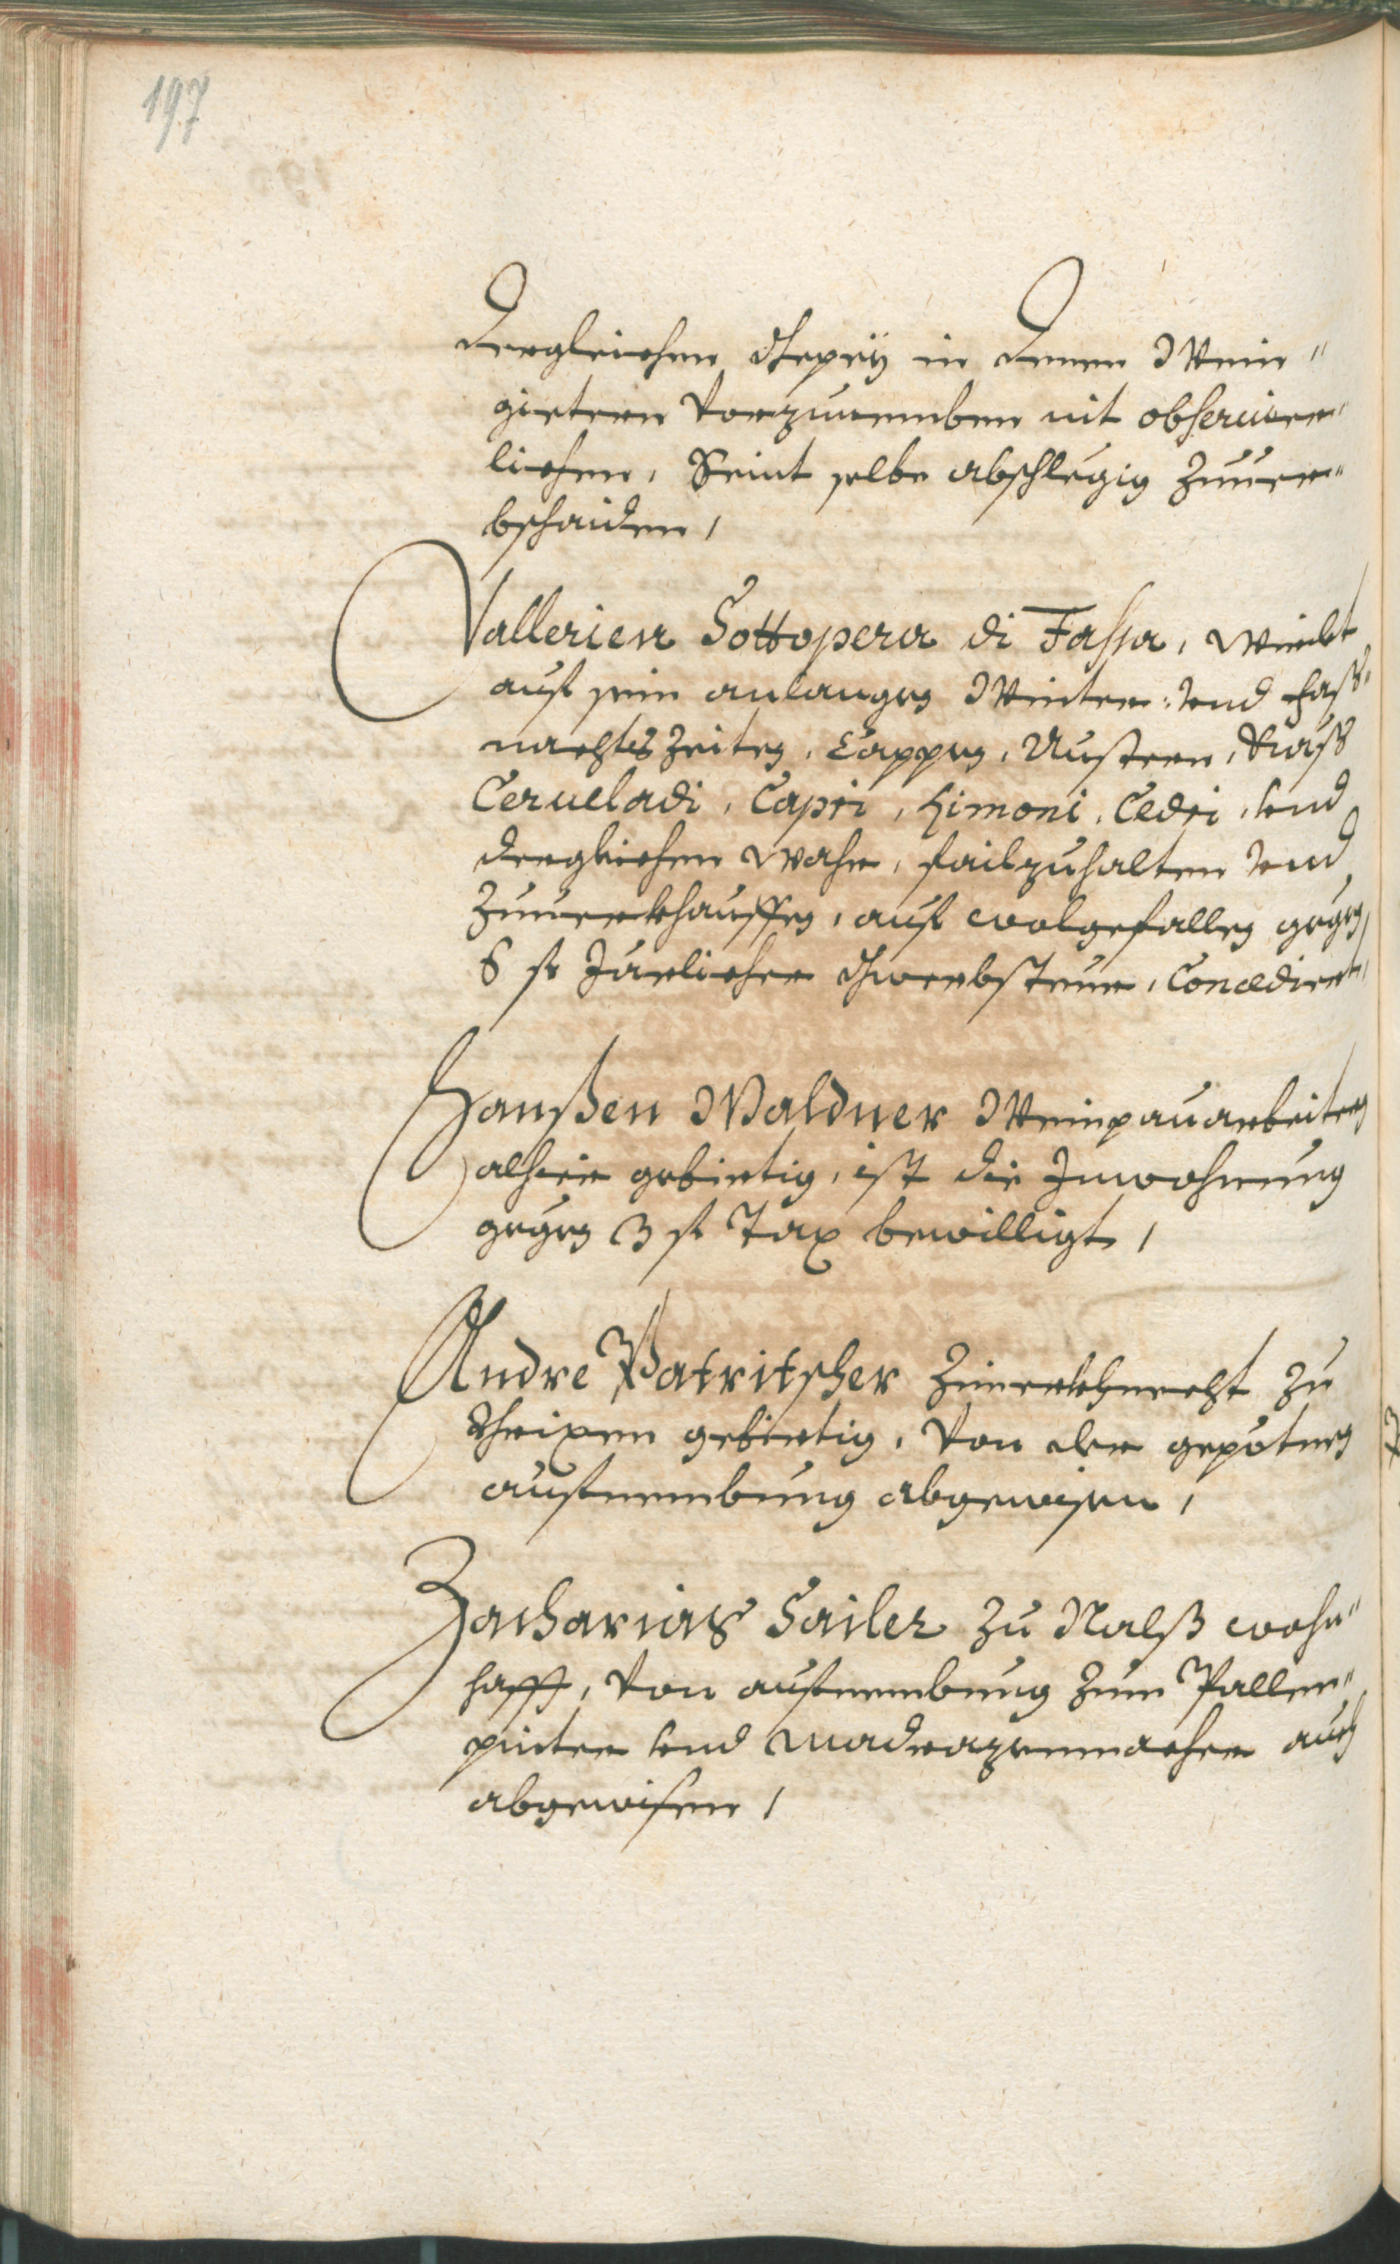 197
Dergleichen Gepeÿ in denen Wein"
gietern vorzunemben nit observier"
lichen, Seint selbe abschlegig zuuer"
bschaiden,
Vallerien Sottopera di Fassa, wirdet
auf sein anlangen Winter: vnd Fass"
nachts Zeiten, Cappen, Austern, Käss
Cerueladi, Capri, Limoni, Cedri, vnd
dergleichen wahr, failzuhalten vnd
Zuuerkhauffen, auf wolgefallen gegen
6 fl Järlicher Gwerbsteur, Concedirt,
Hanßen Waldner Weinpauarbeiter
alhier gebirtig, ist die Inwohnung
gegen 3 fl Tax bewilligt,
Andre Patritscher Zimerkhnecht zu
Griexen gebirtig, von der gepotnen
aufnembung abgewisen,
Zacharias Sailer zu Nalß wohn"
hafft, von aufnembung zum Pallen"
pinter vnd madrazenmacher auch
abgewisen,